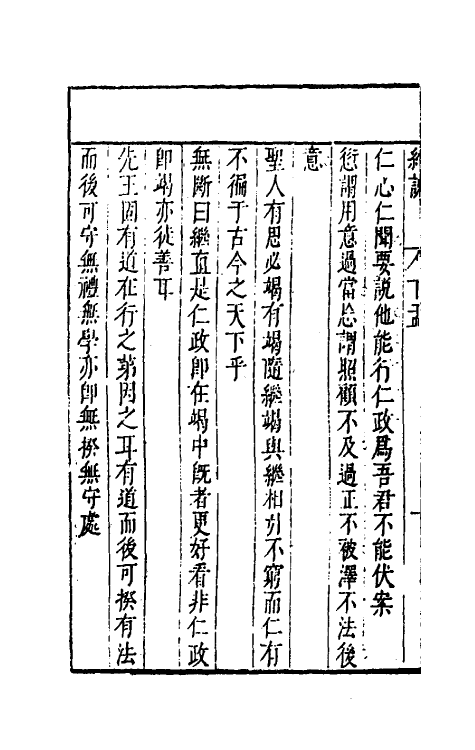 仁心仁聞要說他能行仁政爲吾君不能伏案
愆謂用意過當忘謂照顧不及過正不被澤不法後
意
聖人有思必竭有竭隨繼竭與繼相引不窮而仁有
不徧于古今之天下乎
無斷曰繼直是仁政即在竭中旣者更好看非仁政
即竭亦徒善耳
先王固有道在行之第因之耳有道而後可揆有法
而後可守無禮無學亦即無揆無守處